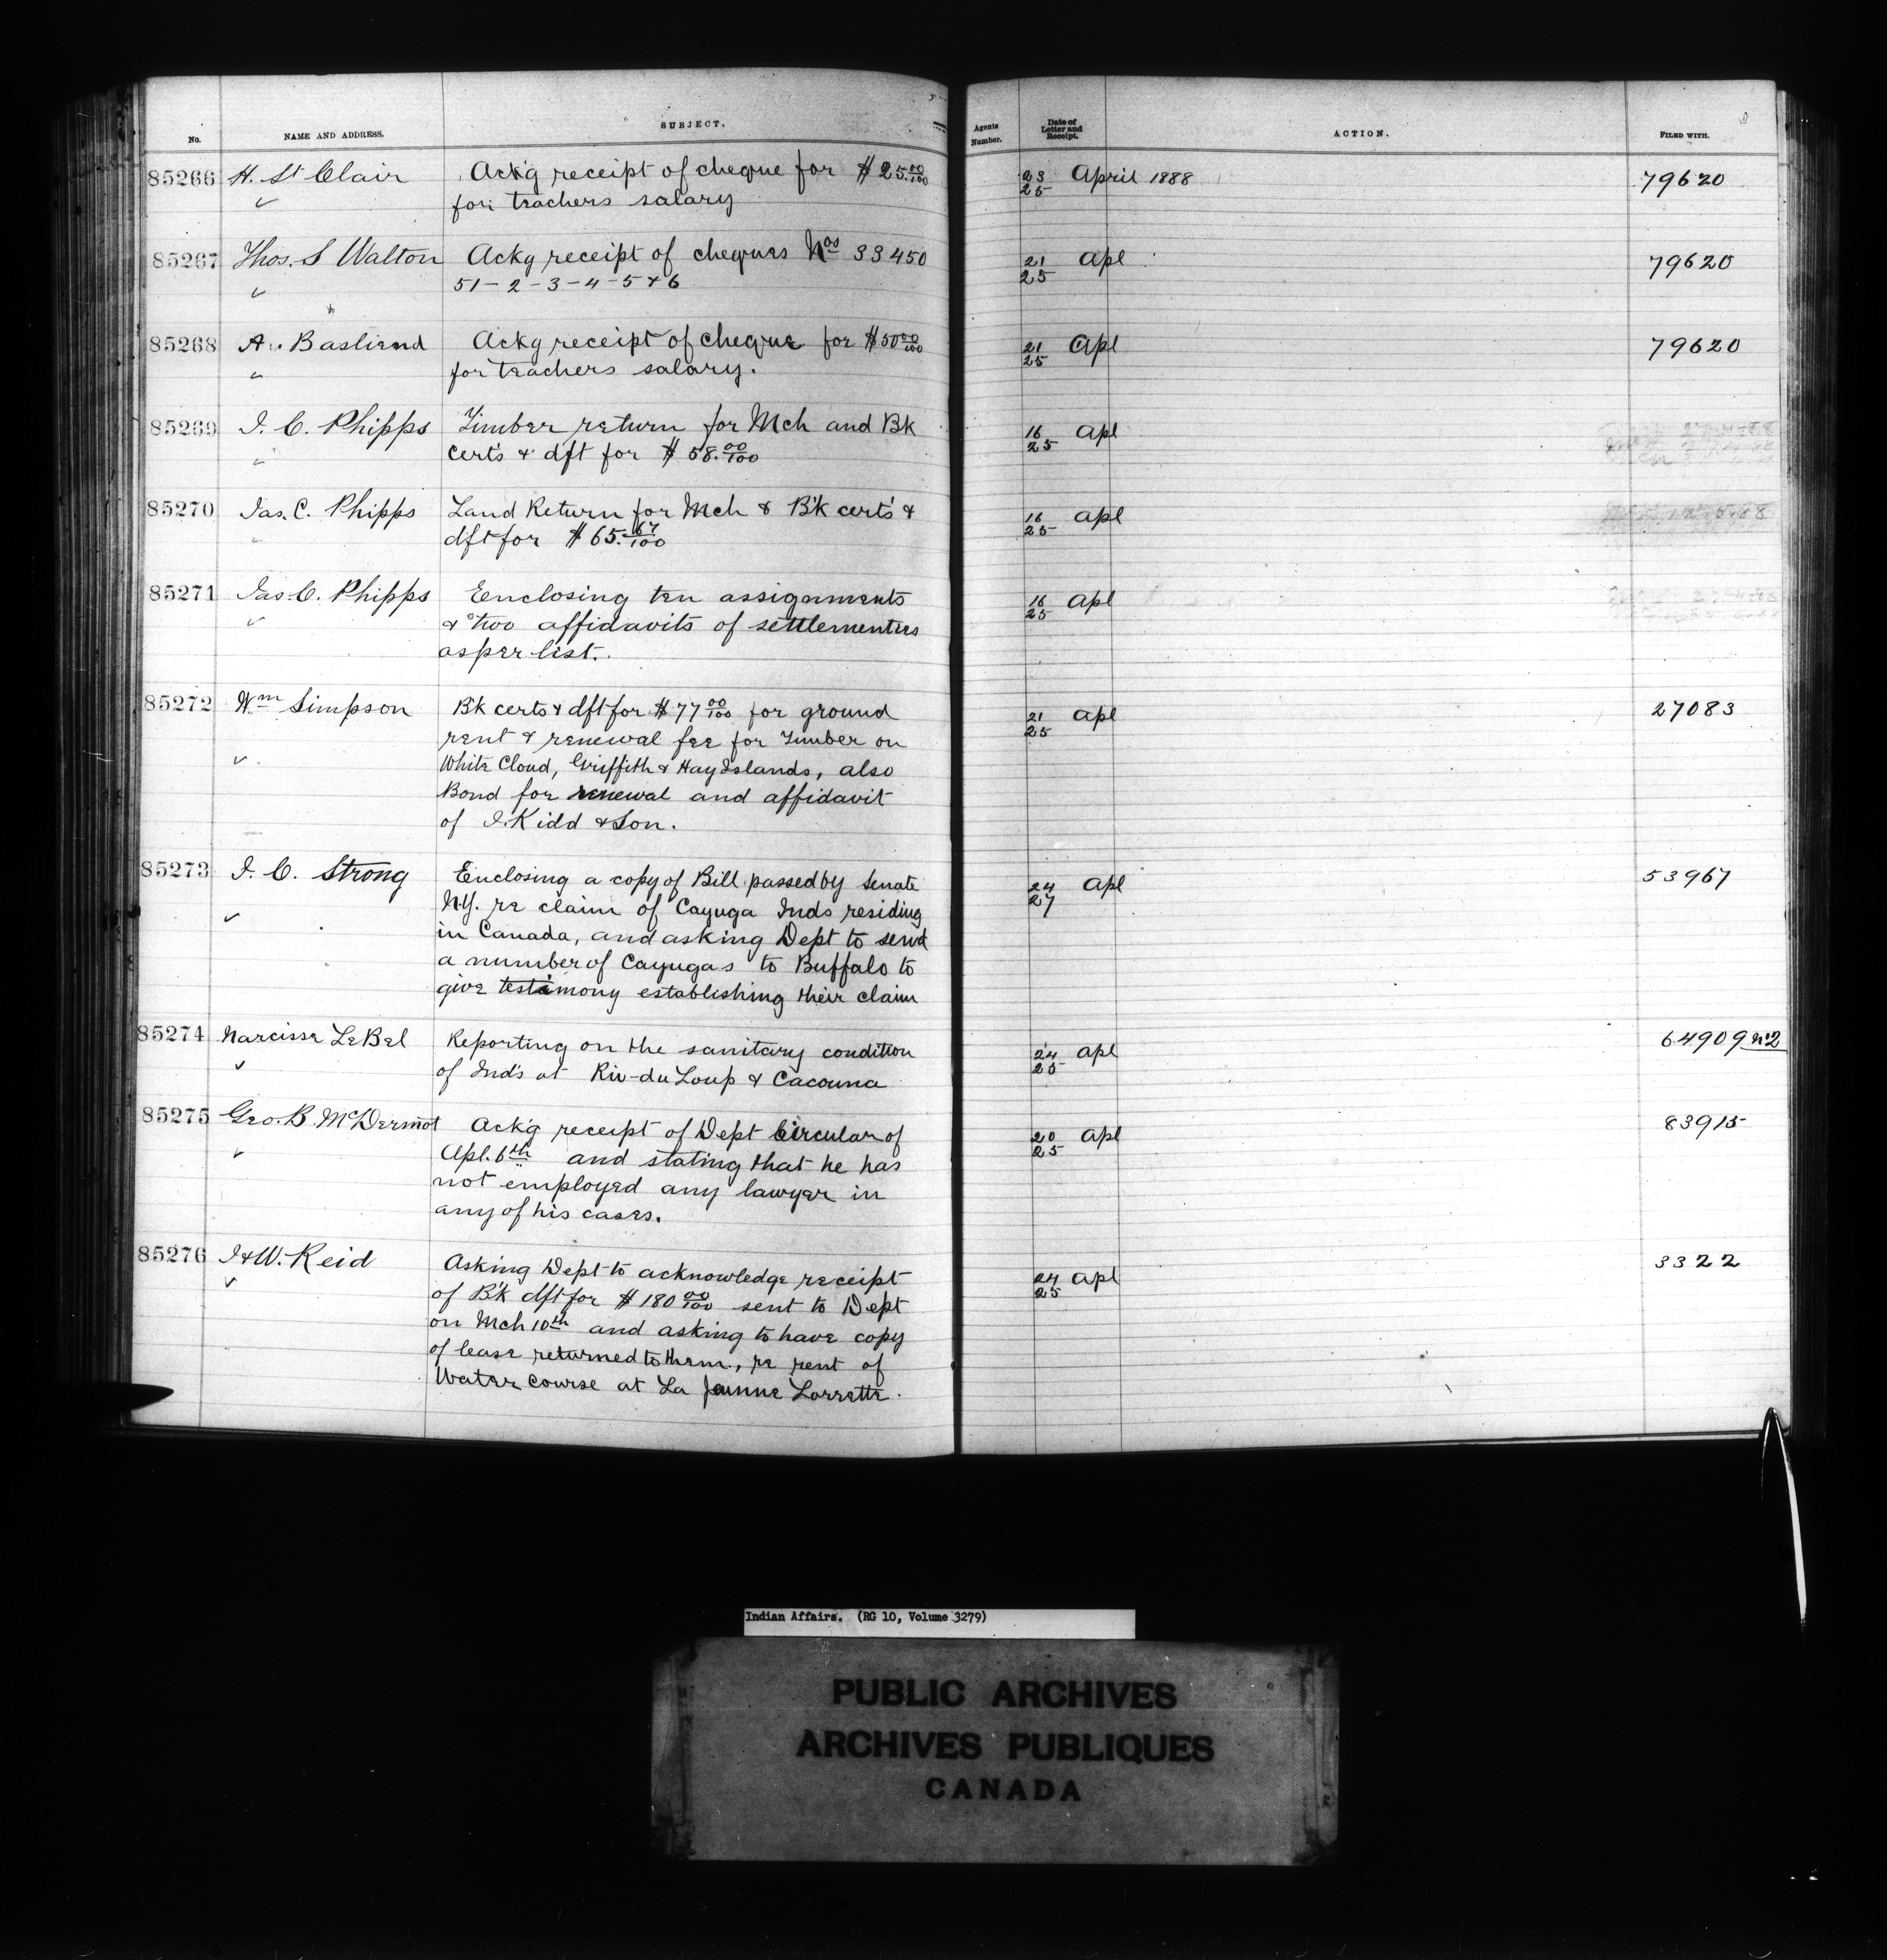 No. NAME AND ADDRESS. SUBJECT. Agents Number. Date of Letter and Receipt. ACTION. FILED WITH.
85266 H. St Clair Ack'g receipt of cheque for $25.00/100 23 April 1888 79620
for teachers salary 25
85267 Thos. S Walton Ackg receipt of cheques Nos 33450 21 Apl 79620
51-2-3-4-5 & 6 25
85268 A. Basliend Ackg receipt of cheque for $50 00/100 21 Apl 79620
for teachers salary. 25
85269 J. C. Phipps Timber return for Mch and Bk 16 Apl
certs & dft for $58.00/100 25
85270 Jas. C. Phipps Land Return for Mch & B'k cert's & 16 Apl
dft for $65.67/100 25
85271 Jas. C. Phipps Enclosing ten assignments 16 Apl
& two affidavits of settlementers 25
as per list.
85272 Wm Simpson B'k certs & dft for $77 00/100 for ground 21 Apl 27083
rent & renewal fee for Timber on 25
White Cloud, Griffith & Hay Islands, also
Bond for renewal and affidavit
of J. Kidd & Son.
85273 J. C. Strong Enclosing a copy of Bill passed by Senate 24 Apl 53967
N.Y. re claim of Cayuga Inds residing 27
in Canada, and asking Dept to send
a number of Cayugas to Buffalo to
give testimony establishing their claim
85274 Narcisse LeBel Reporting on the sanitary condition 24 Apl 64909 No2
of Ind's at Riv-du Loup & Cacouna 25
85275 Geo. B. McDermot Ack'g receipt of Dept Circular of 20 Apl 83915
Apl. 6th and stating that he has 25
not employed any lawyer in
any of his cases.
85276 J & W. Reid Asking Dept to acknowledge receipt 24 Apl 3322
of B'k dft for $180 00/100 sent to Dept 25
on Mch 10th and asking to have copy
of lease returned to them, re rent of
Water course at La Jeunne Lorrette.
Indian Affairs. (RG 10, Volume 3279)
PUBLIC ARCHIVES
ARCHIVES PUBLIQUES
CANADA